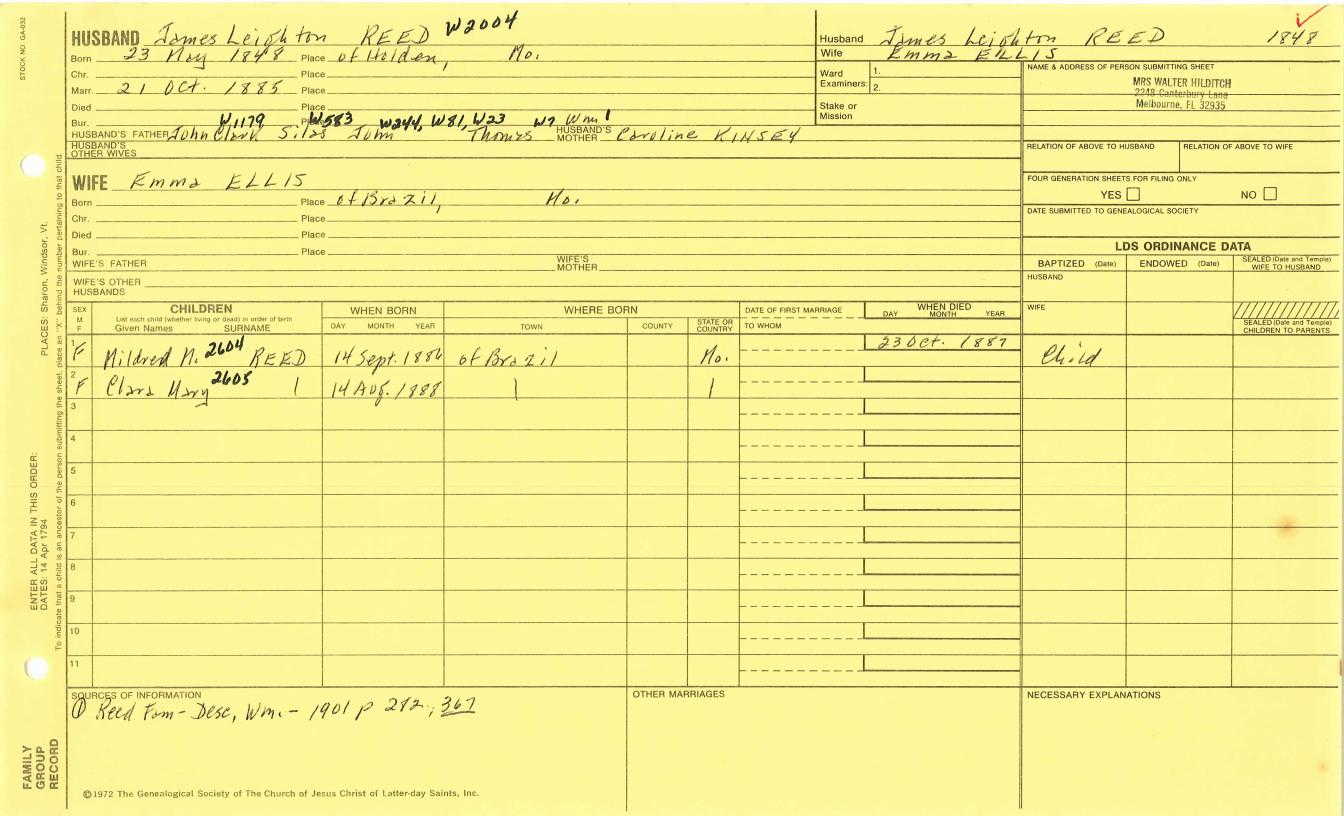 STOCK NO. GA-032
HUSBAND James Leighton REED W2004
Born 23 May 1848 Place of Holden, Mo.
Chr. Place
Marr. 21 Oct. 1885 Place
Died Place
Bur. Place
W1179 W583 W244, W81, W23 W7 Wm 1
HUSBAND'S FATHER John Clark Silas John Thomas HUSBAND'S MOTHER Caroline KINSEY
HUSBAND'S OTHER WIVES
WIFE Emma ELLIS
Born Place of Brazil, Mo.
Chr. Place
Died Place
Bur. Place
WIFE'S FATHER WIFE'S MOTHER
WIFE'S OTHER HUSBANDS
Husband James Leighton REED 1848
Wife Emma ELLIS
Ward Examiners: 1.
2.
Stake or Mission
NAME & ADDRESS OF PERSON SUBMITTING SHEET
MRS WALTER HILDITCH
2248 Canterbury Lane
Melbourne, FL 32935
RELATION OF ABOVE TO HUSBAND RELATION OF ABOVE TO WIFE
FOUR GENERATION SHEETS FOR FILING ONLY
YES NO
DATE SUBMITTED TO GENEALOGICAL SOCIETY
LDS ORDINANCE DATA
BAPTIZED (Date) ENDOWED (Date) SEALED (Date and Temple) WIFE TO HUSBAND
HUSBAND
WIFE
SEALED (Date and Temple) CHILDREN TO PARENTS
SEX M. F CHILDREN WHEN BORN WHERE BORN DATE OF FIRST MARRIAGE WHEN DIED
List each child (whether living or dead) in order of birth
Given Names SURNAME DAY MONTH YEAR TOWN COUNTY STATE OR COUNTRY TO WHOM DAY MONTH YEAR
1 F Mildred M. 2604 REED 14 Sept. 1886 of Brazil Mo. 23 Oct. 1887 Child
2 F Clara Mary 2605 " 14 Aug. 1888 " "
3
4
5
6
7
8
9
10
11
SOURCES OF INFORMATION
① Reed Fam - Desc, Wm. - 1901 p 282, 367
OTHER MARRIAGES
NECESSARY EXPLANATIONS
©1972 The Genealogical Society of The Church of Jesus Christ of Latter-day Saints, Inc.
FAMILY GROUP RECORD
ENTER ALL DATA IN THIS ORDER:
DATES: 14 Apr 1794
PLACES: Sharon, Windsor, Vt.
To indicate that a child is an ancestor of the person submitting the sheet, place an "X" behind the number pertaining to that child.